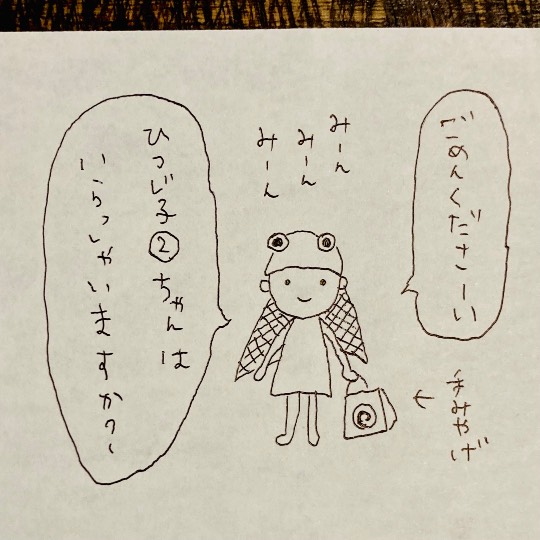 ごめんくださーい
みーん
みーん
みーん
ひつじ子②ちゃんは
いらっしゃいますか?
手みやげ